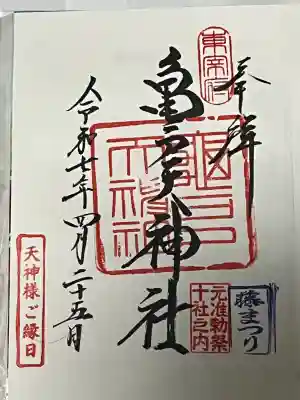 奉拝
東宰府
亀戸天神社
龜戸
天神社
藤まつり
元准勅祭
十社之内
令和七年四月二十五日
天神様ご縁日